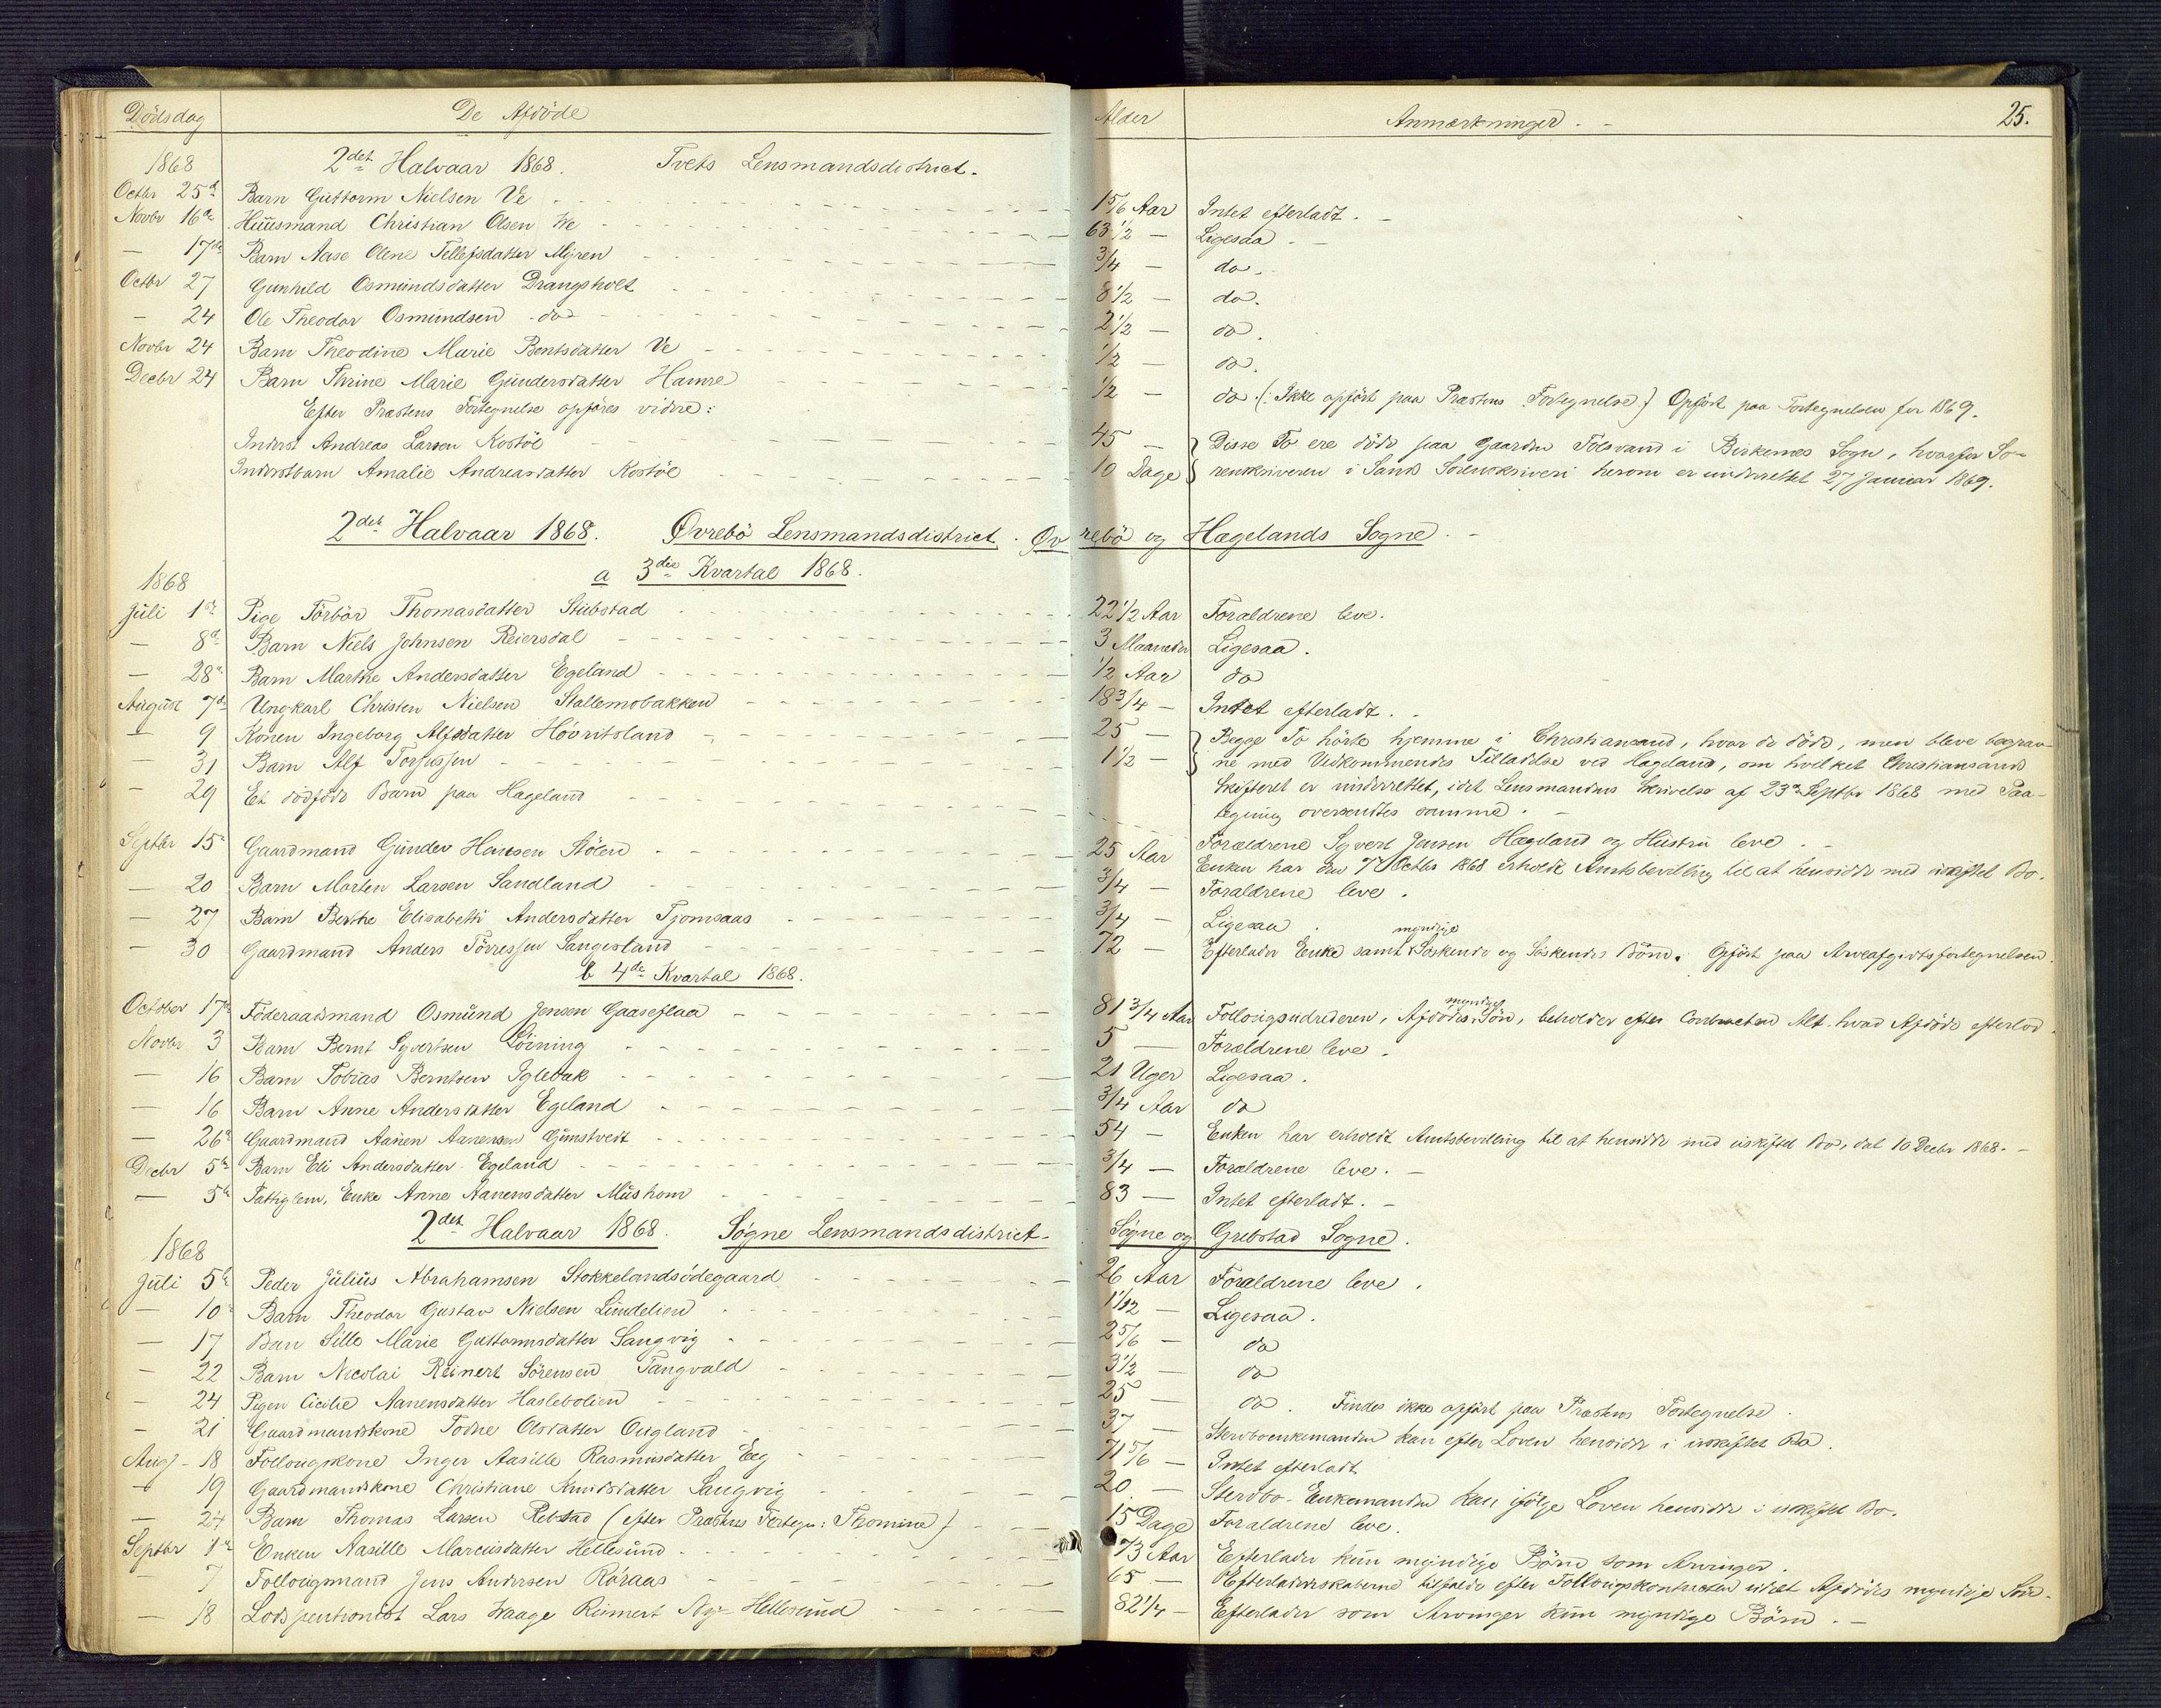 Dödsdag De Afdöde Alder Anmærkninger. 25.
1868 2det Halvaar 1868. Tvets Lensmandsdistrict.
Octbr 25d Barn Guttorm Nielsen Ve 1 5/6 Aar Intet efterladt.
Novbr 16de Huusmand Christian Olsen We 63 1/2 — Ligesaa.
— 17de Barn Aase Olene Tellefsdatter Myren 3/4 — do.
Octbr 27 Gunhild Osmundsdatter Drangsholt 8 1/2 — do.
— 24 Ole Theodor Osmundsen do 2 1/2 — do.
Novbr 24 Barn Theodine Marie Bentsdatter Ve 1/2 — do.
Decbr 24 Barn Thrine Marie Gundersdatter Hamre 1/2 — do (: Ikke opført paa Præstens Fortegnelse.) Opført paa Fortegnelsen for 1869.
Efter Præstens Fortegnelse opføres videre:
Inderst Andreas Larsen Kostøl 45 — Disse To ere døde paa Gaarden Tolsvand i Birkenes Sogn, hvorfor So-
Inderstbarn Amalie Andreasdatter Kostøl 10 Dage renskriveren i Sands Sorenskriveri herom er underrettet 27 Januar 1869.
2det Halvaar 1868. Øvrebö Lensmandsdistrict. Øvrebö og Hægelands Sogne.
1868 a 3die Kvartal 1868.
Juli 1ste Pige Törbör Thomasdatter Stubstad 22 1/2 Aar Forældrene leve.
— 8d Barn Niels Johnsen Reiersdal 3 Maaneder Ligesaa.
— 28d Barn Marthe Andersdatter Egeland 1/2 Aar do
August 7de Ungkarl Christen Nielsen Stallemobakken 18 3/4 — Intet efterladt.
— 9 Konen Ingeborg Alfsdatter 25 — Begge To hörte hjemme i Christiansand, hvor de döde, men bleve begrav-
— 31 Barn Alf 1 1/2 — ne med Vedkommendes Tilladelse ved Hægeland, om hvilket Christiansands
— 29 Et dödfödt Barn paa Hægeland Skifteret er underrettet, idet Lensmandens Skrivelse af 23d Septbr 1868 med Paa-
tegning oversendtes samme.
Forældrene Syvert Jensen Hægeland og Hustru leve.
Septbr 15d Gaardmand Gunder Hansen Stölen 25 Aar Enken har den 7d Octbr 1868 erholdt Amtsbevilling til at hensidde med uskiftet Bo.
— 20 Barn Morten Larsen Sandland 3/4 — Forældrene leve.
— 27 Barn Berthe Elisabeth Andersdatter Tjomsaas 3/4 — Ligesaa.
— 30 Gaardmand Anders Törressen Langesland 72 — Efterlader Enke samt myndige Söskende og Söskendes Börn. Opfört paa Arveafgiftsfortegnelsen.
b 4de Kvartal 1868.
October 17de Föderaadsmand Osmund Jensen Gaaseflaa 81 3/4 Aar Follougsudrederen, Afdödes myndige Sön, beholder efter Contracten Alt hvad Afdöde efterlod.
Novbr 3 Barn Bernt Syvertsen Löining 5 — Forældrene leve.
— 16 Barn Tobias Berntsen Iglebæk 21 Uger Ligesaa.
— 16 Barn Anne Andersdatter Egeland 3/4 Aar do
— 26d Gaardmand Aanen Aanensen Gumstvedt 54 — Enken har erholdt Amtsbevilling til at hensidde med uskiftet Bo, dat 10 Decbr 1868.
Decbr 5te Barn Eli Andersdatter Egeland 3/4 — Forældrene leve.
— 5te Fattiglem, Enke Anne Aanensdatter Mushom 83 — Intet efterladt.
2det Halvaar 1868. Søgne Lensmandsdistrict. Søgne og Grebstad Sogne.
1868
Juli 5te Peder Julius Abrahamsen Stokkelandsödegaard 26 Aar Forældrene leve.
— 10 Barn Theodor Gustav Nielsen Lindelien — Ligesaa.
— 17 Barn Sille Marie Guttormsdatter Langvig 2 5/6 — do
— 22 Barn Nicolai Reinert Sörensen Tangvald 3 1/2 — do
— 24 Pigen Cicilie Aanensdatter Haslebolien 25 — do. Findes ikke opfört paa Præstens Fortegnelse.
— 21 Gaardmandskone Todne Olsdatter Ougland 37 — Stervboenkemanden kan efter Loven hensidde i uskiftet Bo.
Aug — 18 Follougskone Inger Aasille Rasmusdatter Eeg 71 5/6 — Intet efterladt
— 19 Gaardmandskone Christiane Knudsdatter Langvig 20 — Stervbo-Enkemanden kan ifölge Loven hensidde i uskiftet Bo.
— 24 Barn Thomas Larsen Rebstad (efter Præstens Fortegn: Thomine) 15 Dage Forældrene leve.
Septbr 1ste Enken Aasille Marcusdatter Hellesund 73 Aar Efterlader kun myndige Börn som Arvinger.
— 7 Follougmand Jens Andersen Röraas 65 — Efterladenskaberne tilfalde efter Follougskontracten udelt Afdödes myndige Sön.
— 18 Lodspensionist Lars Waage Reinert Ny-Hellesund 82 1/4 — Efterlader som Arvinger kun myndige Börn.